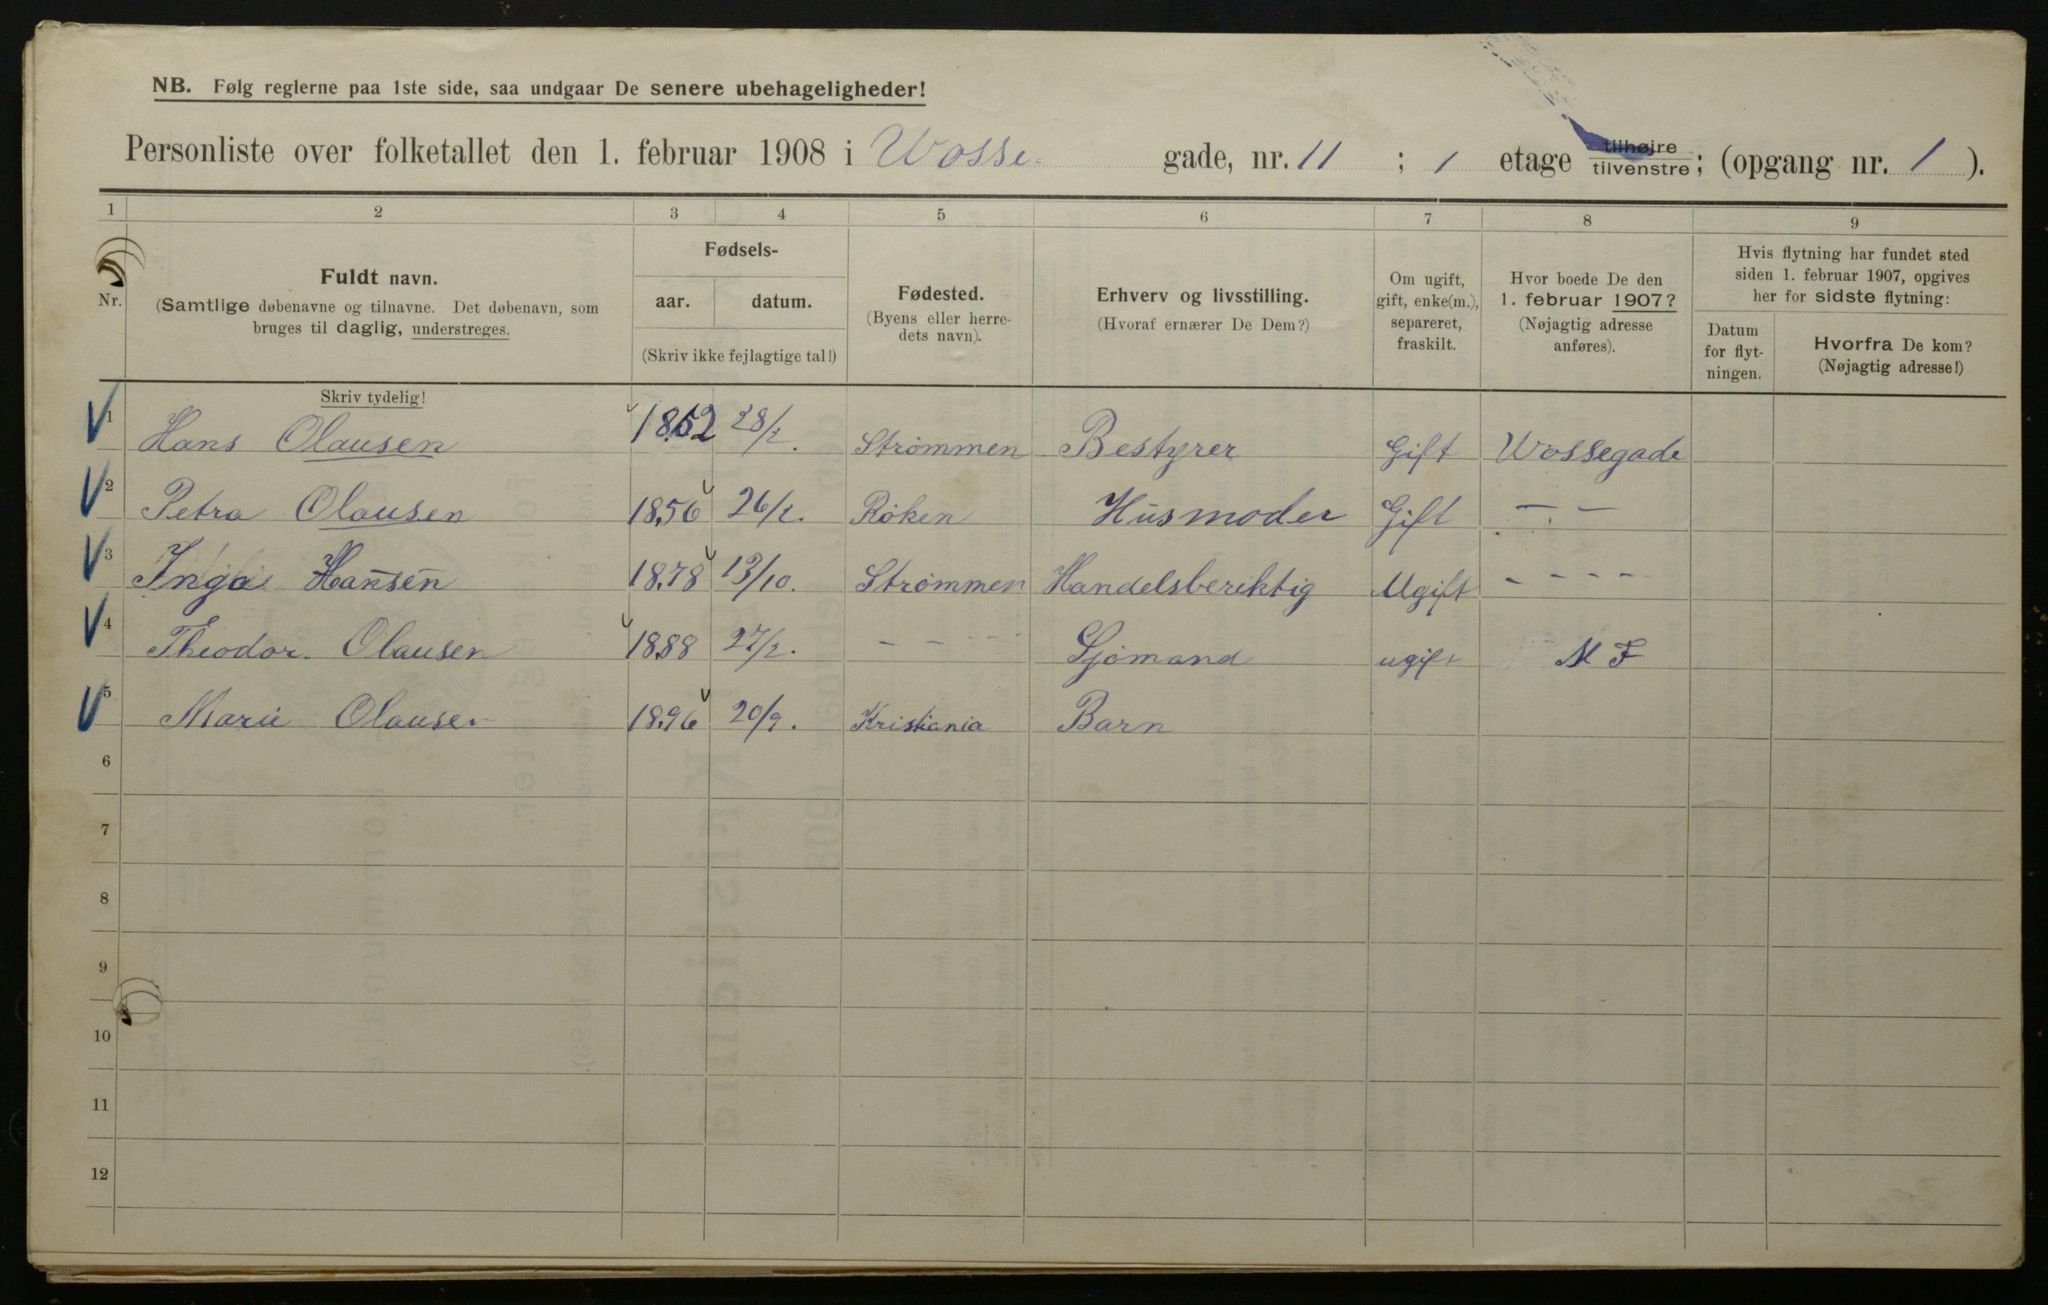 NB. Følg reglerne paa 1ste side, saa undgaar De senere ubehageligheder!
Personliste over folketallet den 1. februar 1908 i Vosse gade, nr. 11 ; 1 etage tilhøjre / tilvenstre; (opgang nr. 1 ).
1 2 3 4 5 6 7 8 9
Nr.
Fuldt navn.
(Samtlige døbenavne og tilnavne. Det døbenavn, som
bruges til daglig, understreges.
Fødsels-
aar. datum.
(Skriv ikke fejlagtige tal!)
Fødested.
(Byens eller herre-
dets navn).
Erhverv og livsstilling.
(Hvoraf ernærer De Dem?)
Om ugift,
gift, enke(m.),
separeret,
fraskilt.
Hvor boede De den
1. februar 1907?
(Nøjagtig adresse
anføres).
Hvis flytning har fundet sted
siden 1. februar 1907, opgives
her for sidste flytning:
Datum
for flyt-
ningen.
Hvorfra De kom?
(Nøjagtig adresse!)
Skriv tydelig!
1 Hans Olausen 1852 28/2. Strømmen Bestyrer Gift Vossegade
2 Petra Olausen 1856 26/2. Røken Husmoder Gift — . —
3 Inga Hansen 1878 13/10. Strømmen Handelsberiktig Ugift - - - -
4 Theodor Olausen 1888 27/2. - - - Sjömand ugift M F
5 Marie Olausen 1896 20/9. Kristiania Barn
6
7
8
9
10
11
12